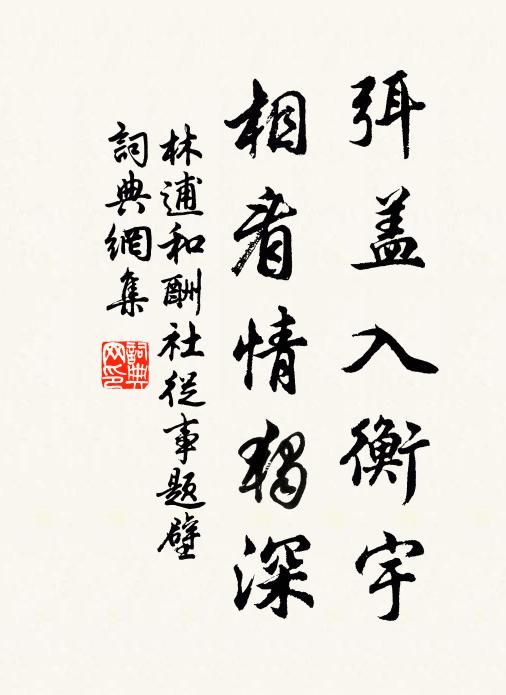 弭盖入衡宇
相看情独深
林逋和酬社從事題壁
詞典網集
詞典网印